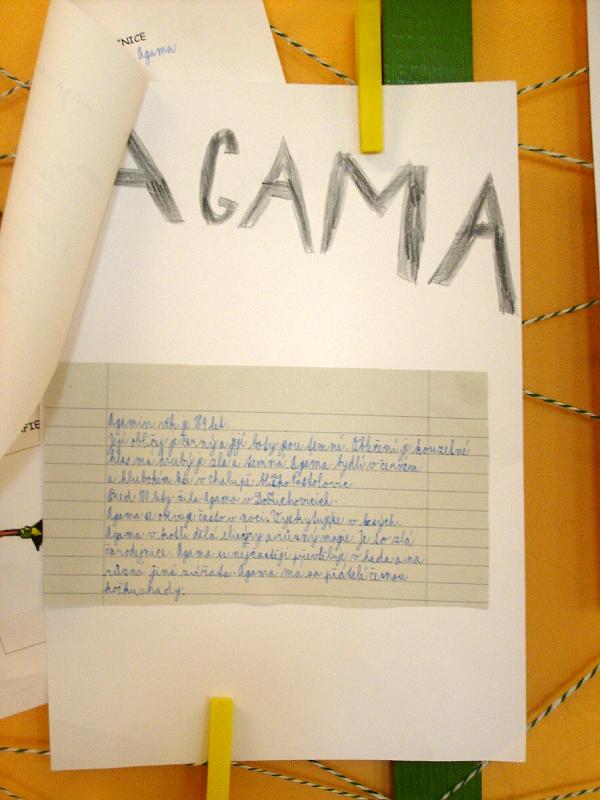 NICE
Agama
AGAMA
Agamin věk je 189 let.
Její obličej je černý a její boty jsou temné. Oblečení je kouzelné
hlas má hrubý je zlá a temná. Agama bydlí v černém
a hlubokém lese v chalupě blízko Častolovic
Před 111 lety žila Agama v Dobřichovicích.
Agama se objevuje často v noci. Vyskytuje se v lesích.
Agama v kotli dělá elixíry a různý magie. Je to zlá
čarodějnice. Agama se nejčastěji převtěluje v hada a na
různá jiná zvířata. Agama má za přátelé černou
kočku a hady.
AFIE